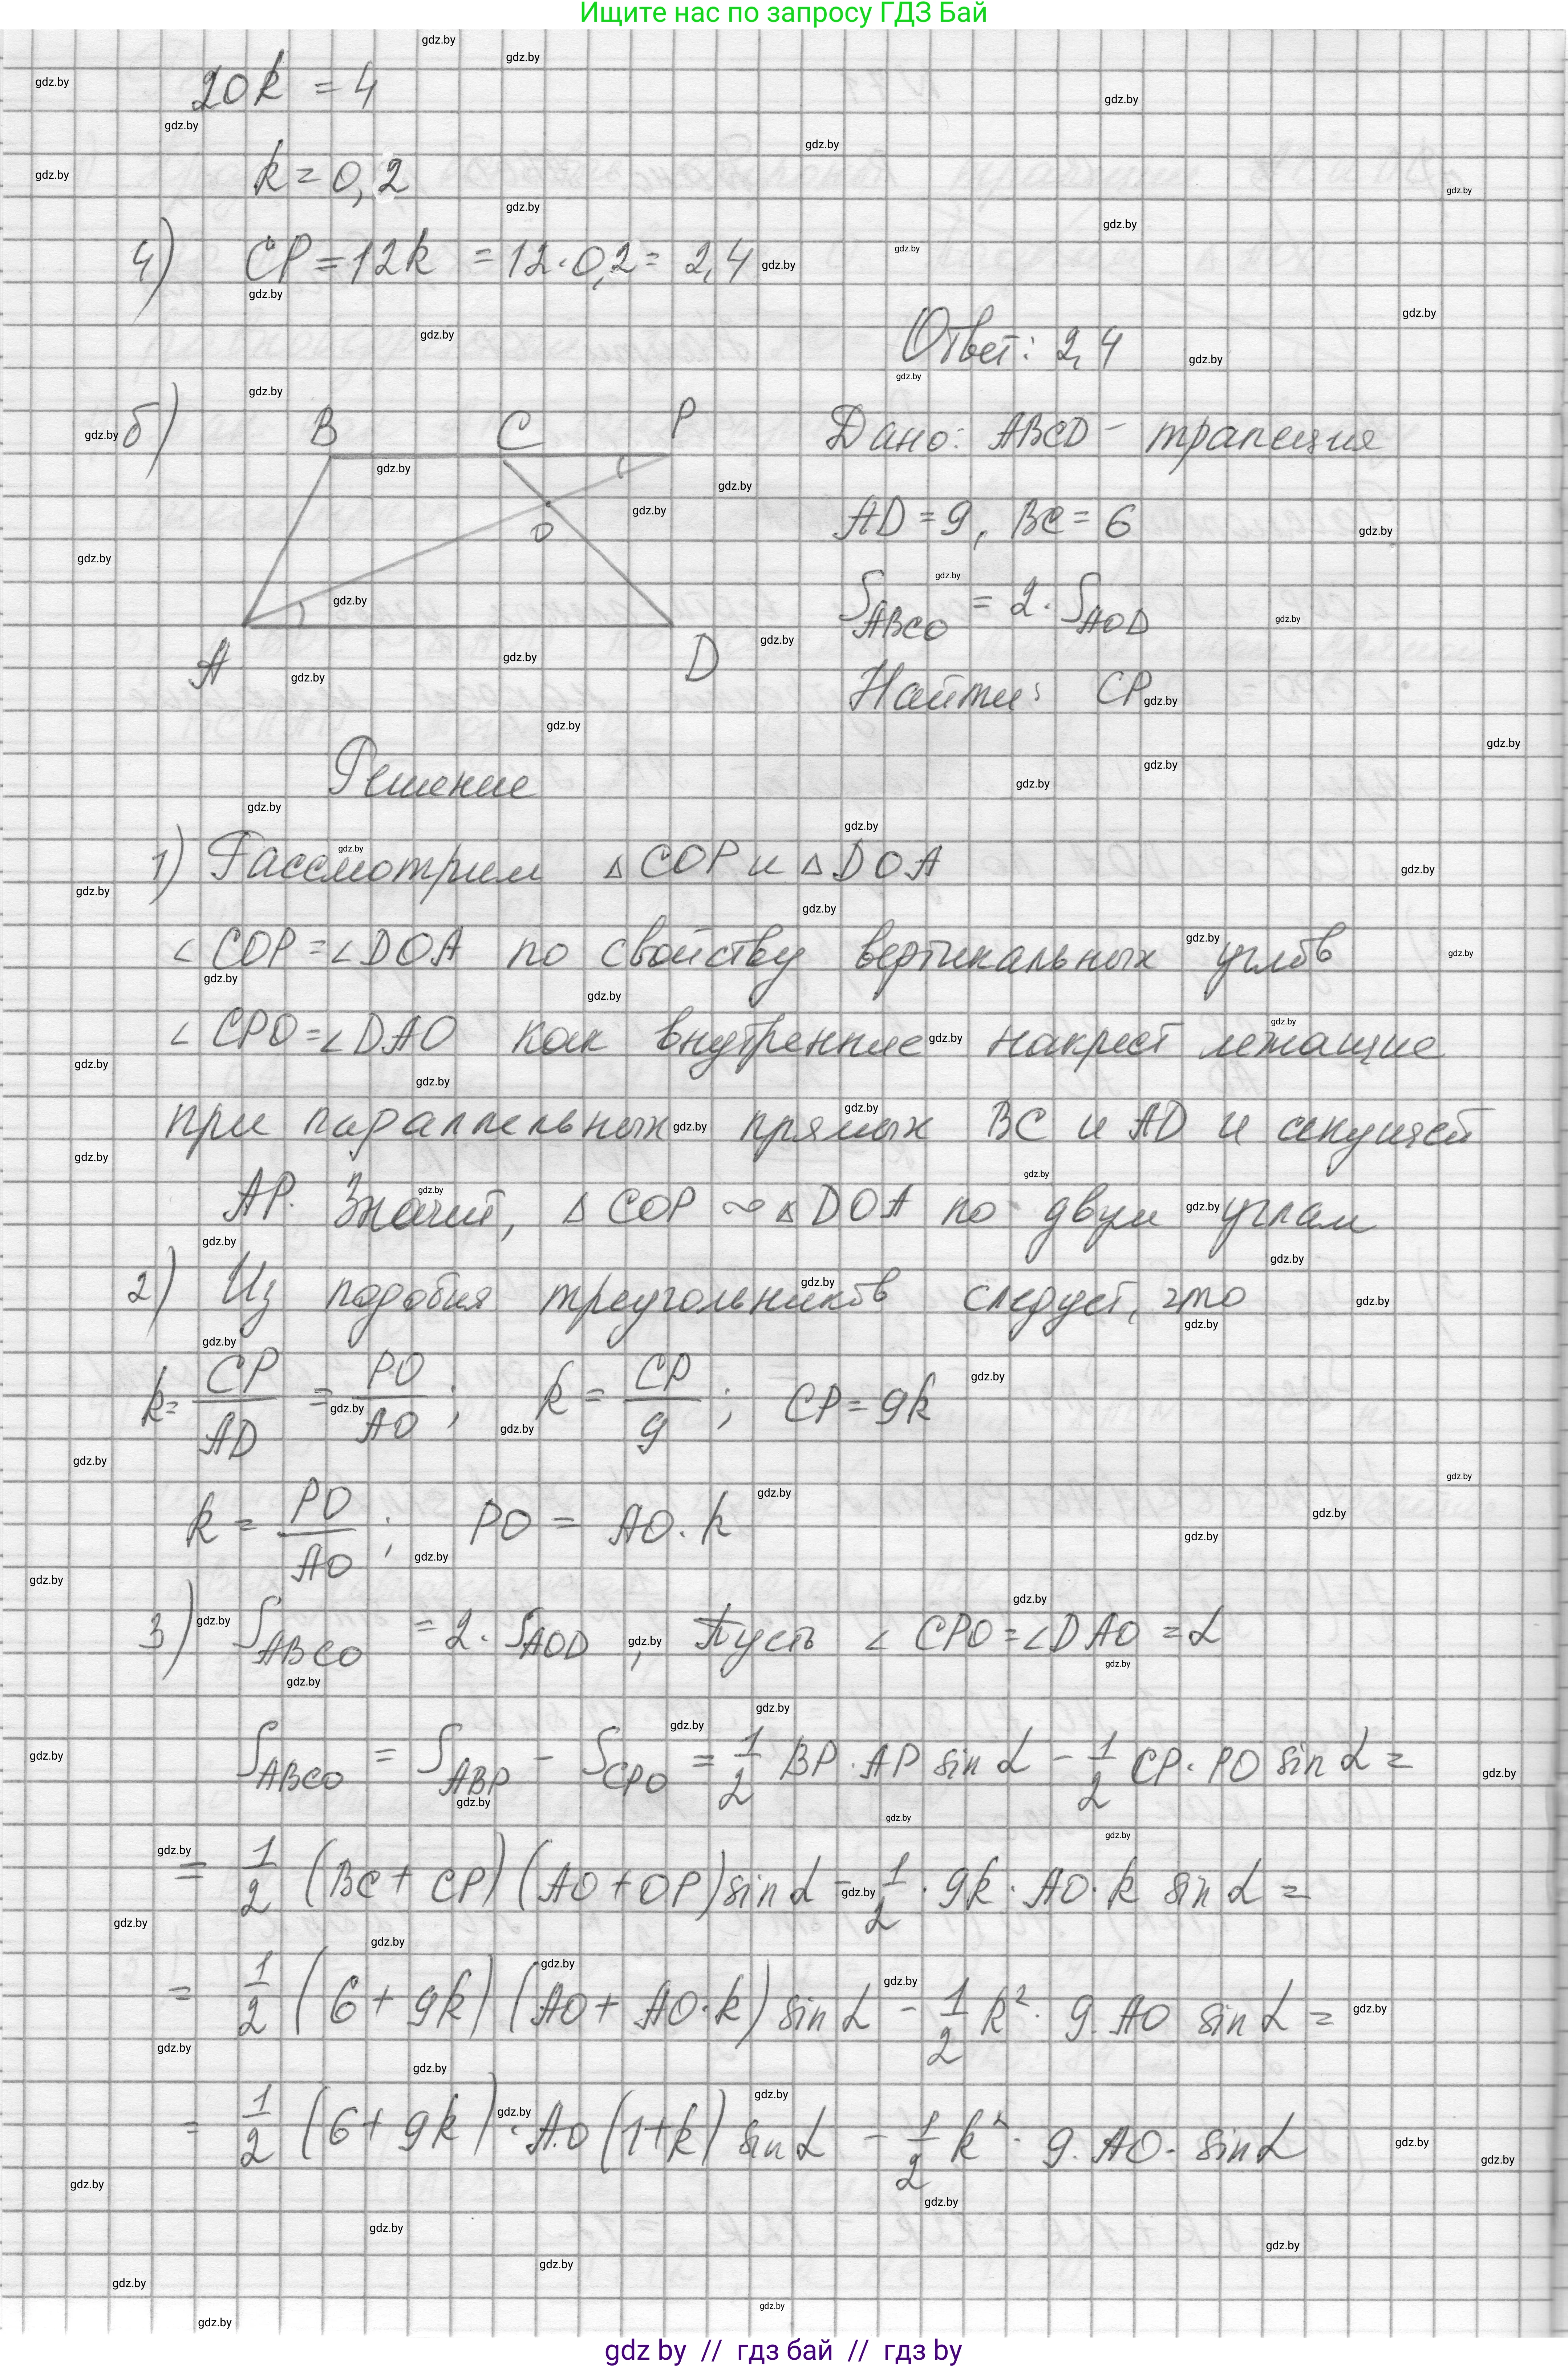 Ищите нас по запросу ГДЗ Бай
20k = 4
k = 0,2
4) CP = 12k = 12·0,2 = 2,4
Ответ: 2,4
б)
B C P
O
A D
Дано: ABCD - трапеция
AD = 9, BC = 6
S_ABCO = 2·S_AOD
Найти: CP
Решение
1) Рассмотрим △COP и △DOA
∠COP = ∠DOA по свойству вертикальных углов
∠CPO = ∠DAO как внутренние накрест лежащие
при параллельных прямых BC и AD и секущей
AP. Значит, △COP ∾ △DOA по двум углам
2) Из подобия треугольников следует, что
k = CP/AD = PO/AO ; k = CP/9 ; CP = 9k
k = PO/AO ; PO = AO·k
3) S_ABCO = 2·S_AOD , Пусть ∠CPO = ∠DAO = α
S_ABCO = S_ABP - S_CPO = 1/2 BP·AP sin α - 1/2 CP·PO sin α =
= 1/2 (BC + CP)(AO + OP) sin α - 1/2 · 9k · AO·k sin α =
= 1/2 (6 + 9k)(AO + AO·k) sin α - 1/2 k²· 9·AO sin α =
= 1/2 (6 + 9k)·AO(1+k) sin α - 1/2 k²· 9·AO· sin α
gdz by // гдз бай // гдз by